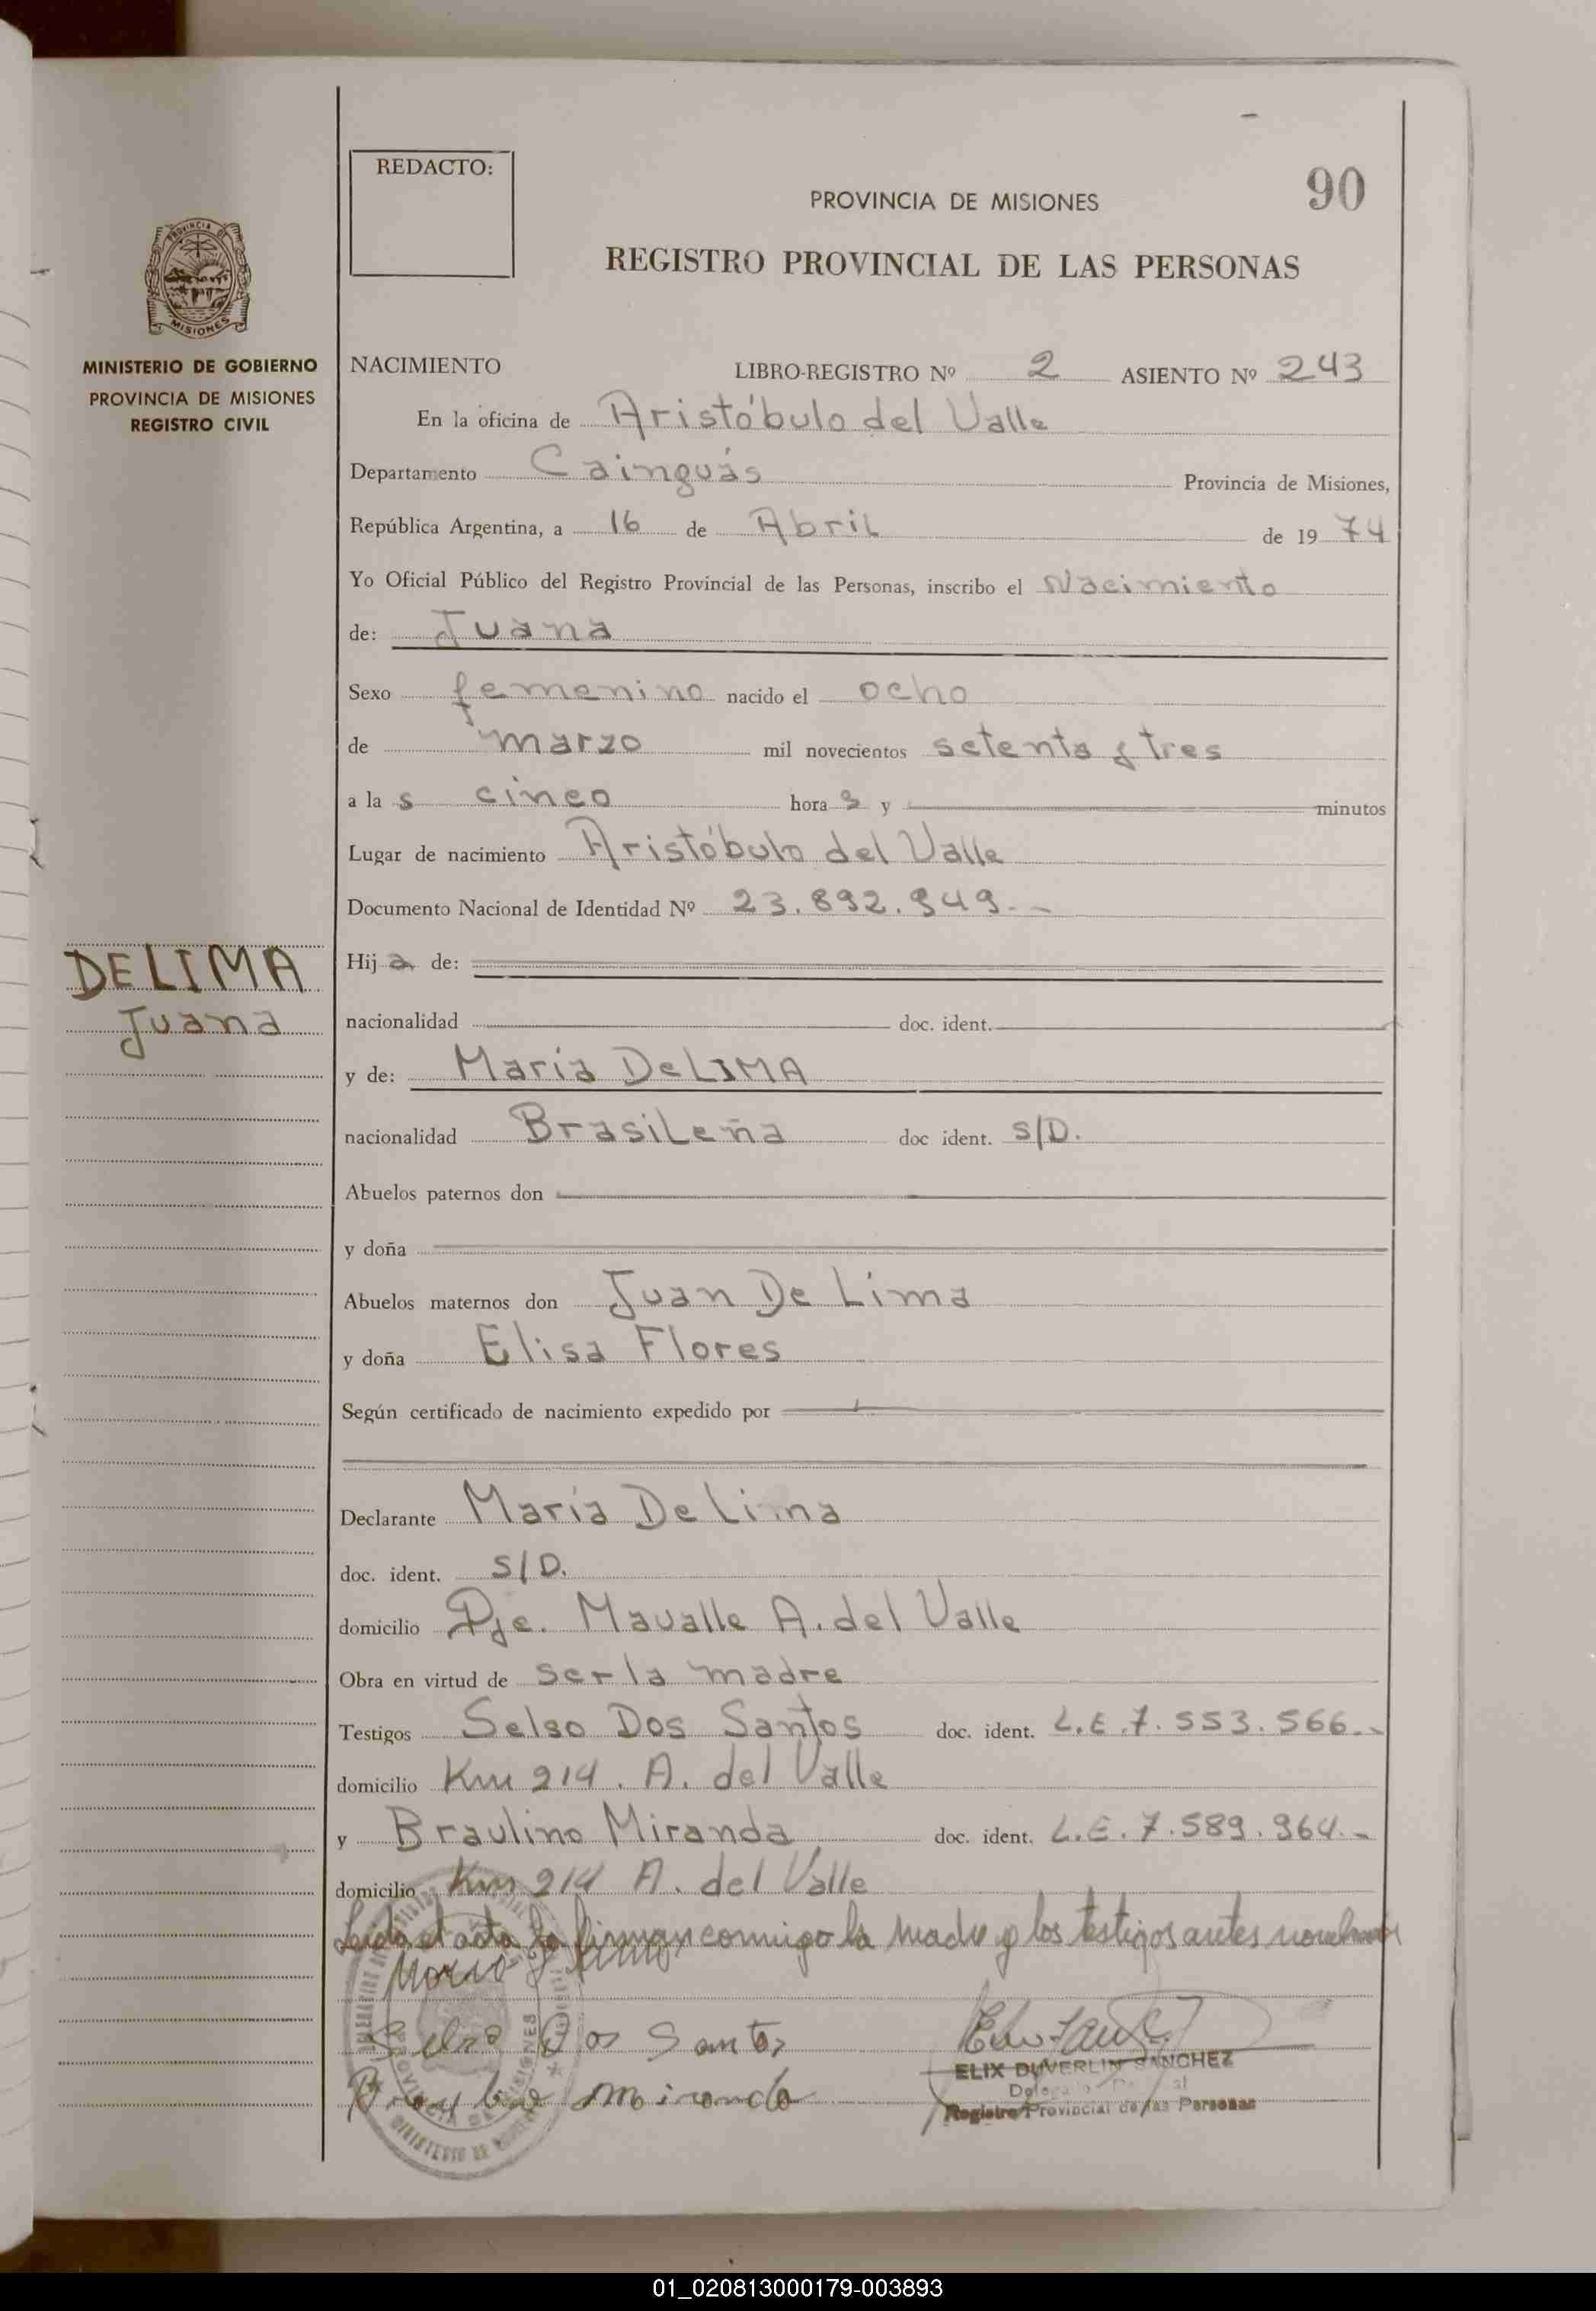 REDACTO:
90
PROVINCIA DE MISIONES
REGISTRO PROVINCIAL DE LAS PERSONAS
PROVINCIA DE
MISIONES
MINISTERIO DE GOBIERNO
PROVINCIA DE MISIONES
REGISTRO CIVIL
NACIMIENTO LIBRO-REGISTRO Nº 2 ASIENTO Nº 243
En la oficina de Aristóbulo del Valle
Departamento Cainguás Provincia de Misiones,
República Argentina, a 16 de Abril de 19 74
Yo Oficial Público del Registro Provincial de las Personas, inscribo el Nacimiento
de: Juana
Sexo femenino nacido el ocho
de marzo mil novecientos setenta y tres
a la s cinco hora s y minutos
Lugar de nacimiento Aristóbulo del Valle
Documento Nacional de Identidad Nº 23.892.949.-
DELIMA
Juana
Hij a de:
nacionalidad doc. ident.
y de: María DeLIMA
nacionalidad BrasiLeña doc ident. S/D.
Abuelos paternos don
y doña
Abuelos maternos don Juan De Lima
y doña Elisa Flores
Según certificado de nacimiento expedido por
Declarante María De Lima
doc. ident. S/D.
domicilio Pje. Mavalle A. del Valle
Obra en virtud de ser la madre
Testigos Selso Dos Santos doc. ident. L.E. 7.553.566.-
domicilio Km 214. A. del Valle
y Braulino Miranda doc. ident. L.E. 7.589.964.-
domicilio Km 214 A. del Valle
Leida el acta la firman conmigo la madre y los testigos antes nombrados
Selso Dos Santos
ELIX DUVERLIN SANCHEZ
Miranda
Registro Provincial de las Personas
01_020813000179-003893